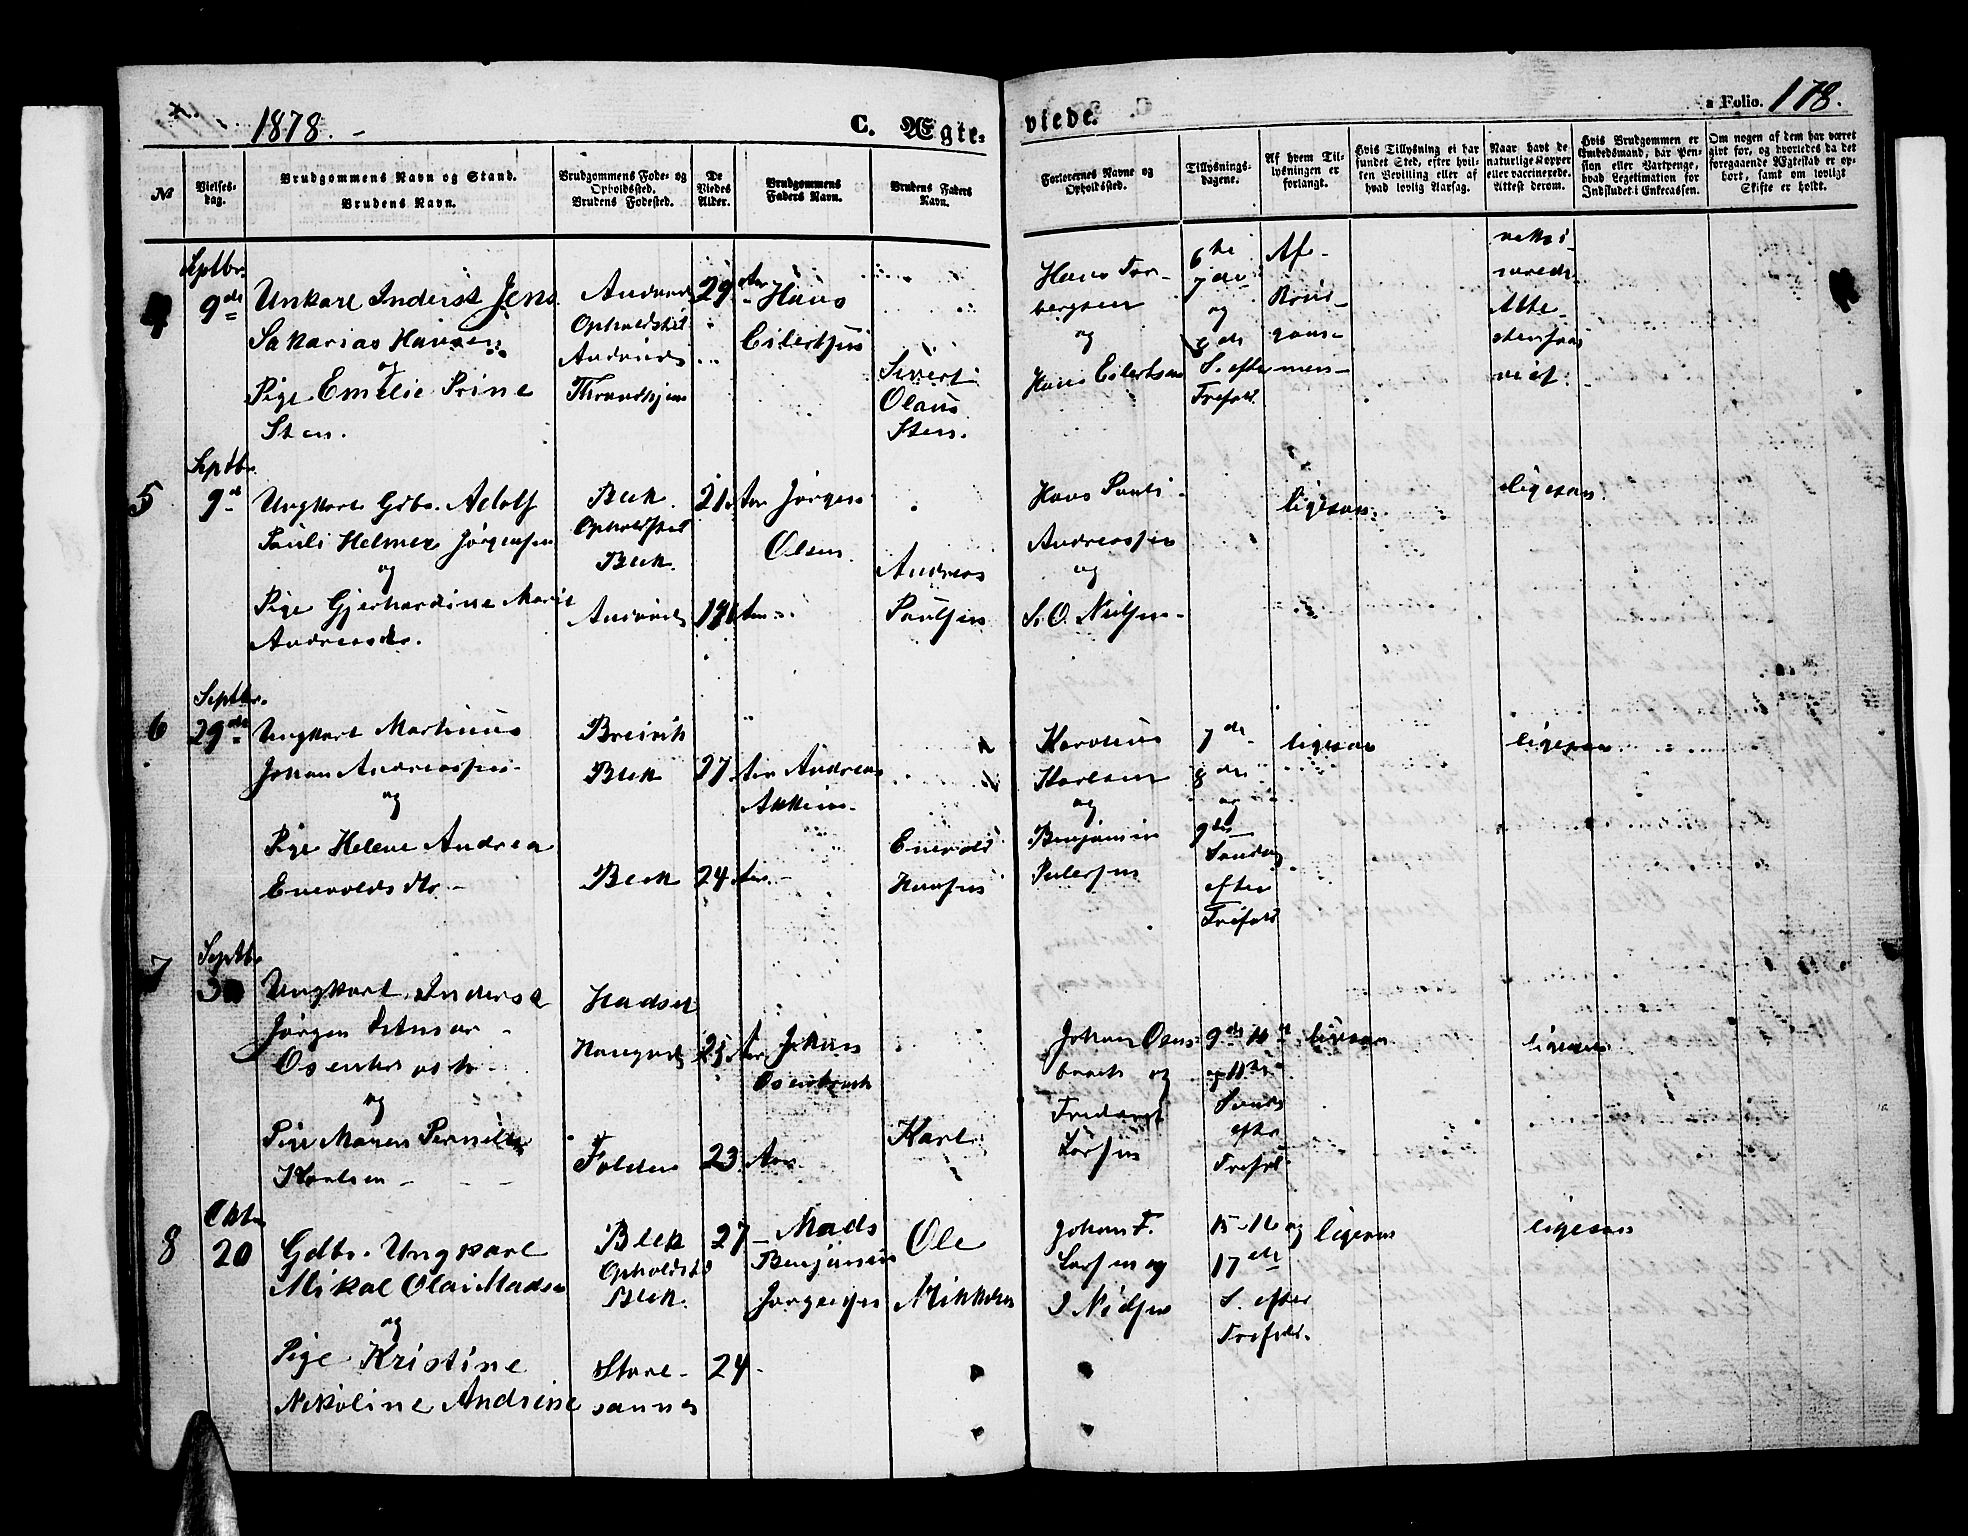 1878.
C. Ægte-
viede.
a Folio. 178.
No
Vielses-
dag.
Brudgommens Navn og Stand.
Brudens Navn.
Brudgommens Føde- og
Opholdssted.
Brudens Fødested.
De
Viedes
Alder.
Brudgommens
Faders Navn.
Brudens Faders
Navn.
Forlovernes Navne og
Opholdssted.
Tillysnings-
dagene.
Af hvem Til-
lysningen er
forlangt.
Hvis Tillysning ei har
fundet Sted, efter hvil-
ken Bevilling eller af
hvad lovlig Aarsag.
Naar havt de
naturlige Kopper
eller vaccinerede.
Attest derom.
Hvis Brudgommen er
Embedsmand, har Pen-
sion eller Vartpenge,
hvad Legitimation for
Indskudet i Enkecassen.
Om nogen af dem har været
gift før, og hvorledes da det
foregaaende Ægteskab er op-
hørt, samt om lovligt
Skifte er holdt.
4
Septbr.
9de
Unkarl Inderst Jens
Sakarias Hansen
og
Pige Emelie Prine
Sten.
Opholdsted
Throndhjem
29 Aar
Hans
Eilertsen
Sivert
Olaus
Sten.
Hans Tor-
bergsen
og
Hans Eilertsen
6te
7de
og
8de
S. efter
Trefold.
Af
vaksi-
nerede
Atte-
viist.
5
Septbr.
9de
Ungkarl Gdbr. Adolf
Pauli Helmer Jørgensen
og
Pige Gjerhardine Marie
Andreasdtr.
Blek
Opholdsted
Blek.
21 Aar
Aar
Jørgen
Olsen
Andreas
Paulsen
Hans Pauli
Andreassen
og
S. O. Nielsen
ligesaa
ligesaa
6
Septbr.
29de
Ungkarl Martinus
Johan Andreassen
og
Pige Helene Andrea
Enevoldsdtr.
Breivik
Blek
Blek
27 Aar
24 Aar
Andreas
Enevold
Hansen
Karolius
Karlsen
og
Benjamin
Pedersen
7de
8de
og
9de
Søndag
efter
Trefold
ligesaa
ligesaa
7
Septbr.
Ungkarl Inderst
Jørgen
og
Pige Maren Pernille
Karlsen
Hadsel
Folden
25 Aar
23 Aar
Johan
Karl
Johan
og
9de 10de
og 11te
Sønd.
efter
Trefold
ligesaa
ligesaa
8
Oktbr
20
Gdbr. Ungkarl
Mikal Olai Madsen
og
Pige Kristine
Nikoline Andrine
Blek
Opholdsted
Blek.
Store-
sannes
27
24
Mads
Benjamin
Jørgensen
Ole
Mikkelsen
Johan F.
Larsen og
J Nielsen
15-16 og
17de
S. efter
Trefold.
ligesaa
ligesaa